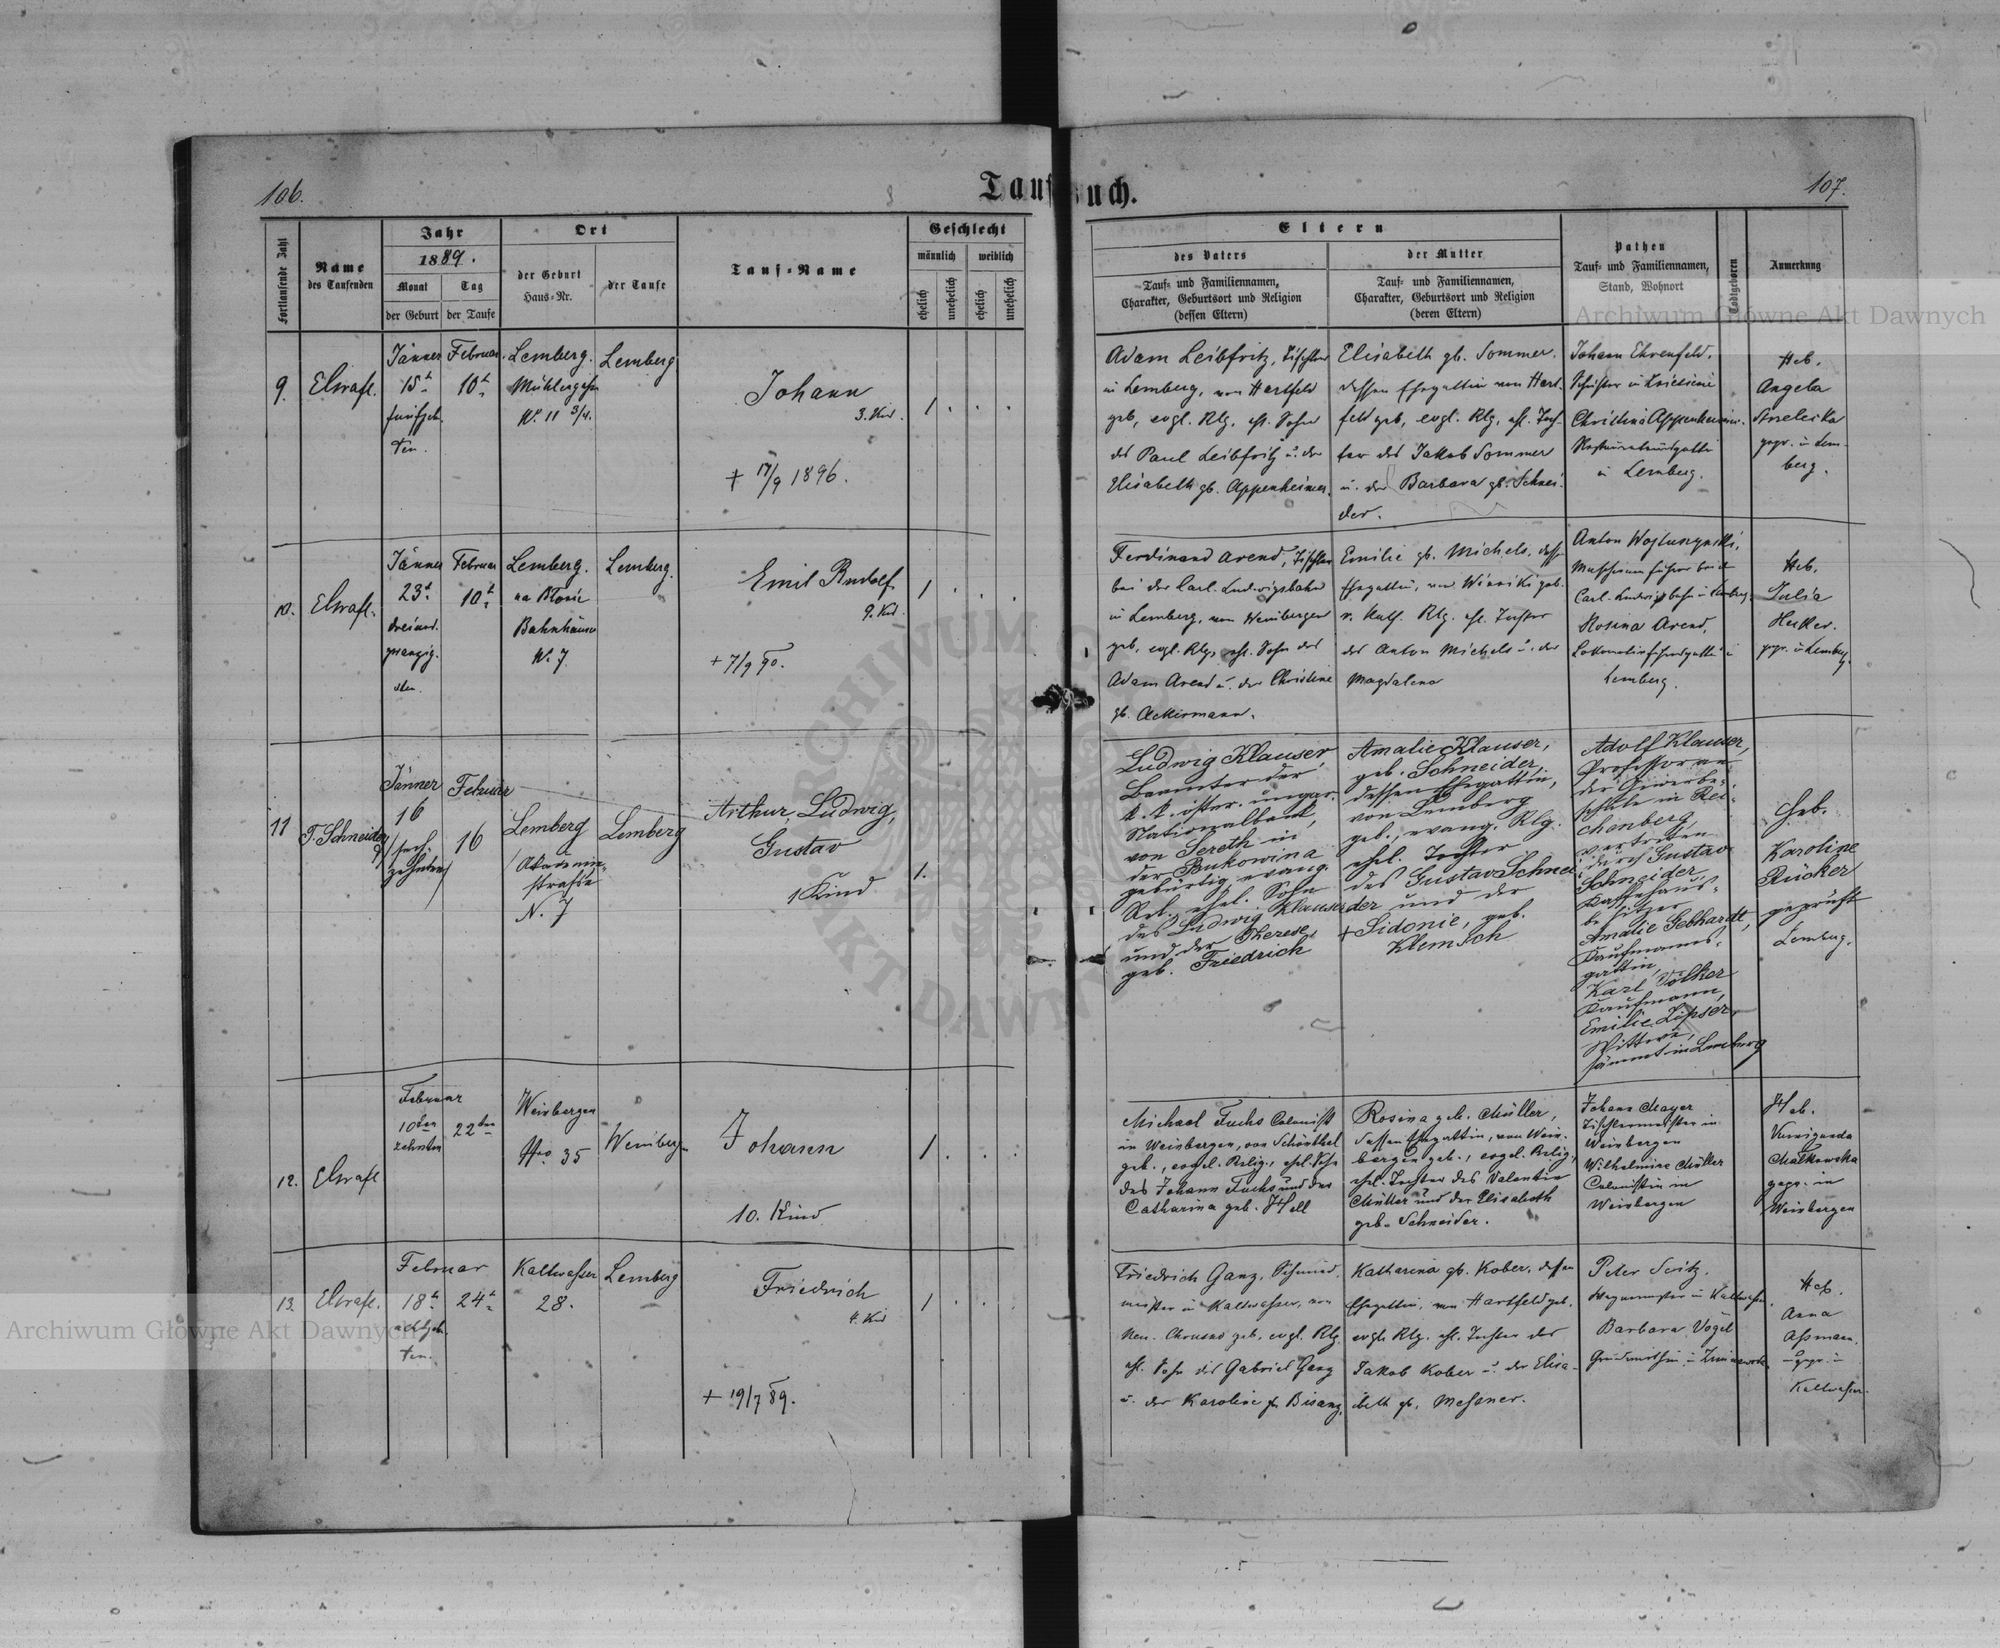 106.
Taufbuch.
107.
Fortlaufende Zahl
Name
des Taufenden
Jahr
1889.
Monat
Tag
der Geburt
der Taufe
Ort
der Geburt
Haus-Nr.
der Taufe
Tauf-Name
Geschlecht
männlich
weiblich
ehelich
unehelich
ehelich
unehelich
Eltern
des Vaters
Tauf- und Familiennamen,
Charakter, Geburtsort und Religion
(dessen Eltern)
der Mutter
Tauf- und Familiennamen,
Charakter, Geburtsort und Religion
(deren Eltern)
Pathen
Tauf- und Familiennamen,
Stand, Wohnort
Todtgeboren
Anmerkung
Archiwum Główne Akt Dawnych
9.
Jänner
15t
fünfzehn
ten.
Februar
10t
Lemberg.
Nr. 11 3/4.
Lemberg
Johann
3. Kind.
+ 17/9 1896.
1 . . .
Adam Leibfritz, Tischler
in Lemberg, von Hartfeld
geb, evgl. Rlg, ehl. Sohn
des Paul Leibfritz u. der
Elisabeth gb. Appenheimer.
Elisabeth gb. Sommer.
dessen Ehegattin von Hart-
feld geb, evgl. Rlg, ehl. Toch-
ter des Jakob Sommer
u. der Barbara gb. Schnei-
der.
Johann Ehrenfeld,
in Lemberg.
Heb.
Angela
gepr. in Lem-
berg.
10.
Jänner
23t
dreiund.
zwanzig.
sten.
Februar
10t
Lemberg.
na Błonie
Bahnhäuser
Nr. 7
Lemberg.
Emil Rudolf
9. Kind.
+ 7/9 90.
1 . . .
Ferdinand Arend, Tischler
bei der Carl. Ludwigsbahn
in Lemberg, von Weinbergen
geb, evgl. Rlg, ehl. Sohn des
Adam Arend u. der Christine
gb. Ackermann.
Emilie gb. Michels, dessen
Ehegattin, von Winniki geb.
r. Kath. Rlg. ehl. Tochter
des Anton Michels u. der
Magdalena
Carl. Ludwigsbahn in Lemberg.
Rosina Arend,
Lemberg.
Heb.
Julia
gepr. in Lemberg.
11
T. Schneider
Jänner
16
/sech-
zehnten/
Februar
16
Lemberg
/Akademie-
straße
N. 7
Lemberg
Arthur, Ludwig,
Gustav
1 Kind
1.
Ludwig Klauser,
Beamter der
k. k. öster. ungar.
Nationalbank,
von Sereth in
der Bukowina
gebürtig, evang.
Rel., ehel. Sohn
des Ludwig Klauser
und der Therese,
geb. Friedrich
Amalie Klauser,
geb. Schneider,
dessen Ehegattin,
von Lemberg
geb., evang. Rlg.
ehel. Tochter
des Gustav Schnei-
der und der
+ Sidonie, geb.
Klemsch
Adolf Klauser,
Professor an
der Gewerbe-
schule in Rei-
chenberg,
vertreten
durch Gustav
Schneider,
Kaffehaus-
besitzer
Amalie Gebhardt,
Kaufmanns-
gattin,
Karl Völker
Kaufmann,
Emilie Zipser,
Wittwe,
sämmt. in Lemberg
Geb.
Karoline
Rücker
geprüft
Lemberg.
12.
Februar
10ten
zehnten
22ten
Weinbergen
Nro 35
Weinbergen
Johann
10. Kind
1 . . .
Michael Fuchs Colonist
in Weinbergen, von Schönthal
geb., evgel. Relig., ehel. Sohn
des Johann Fuchs und der
Catharina geb. Hell
Rosina geb. Müller,
dessen Ehegattin, von Wein-
bergen geb., evgel. Relig.,
ehel. Tochter des Valentin
Müller und der Elisabeth
geb. Schneider.
Johann Mayer
Tischlermeister in
Weinbergen
Wilhelmine Müller
Colonistin in
Weinbergen
Heb.
Kunigunda
Małkowska
gepr. in
Weinbergen
13.
Februar
18t
achtzehn
ten.
24t
Kaltwasser
28.
Lemberg
Friedrich
4. Kind
+ 19/7 89.
1 . . .
Friedrich Ganz, Schmied.
meister in Kaltwasser, von
Neu. Chrusno geb, evgl. Rlg.
ehl. Sohn des Gabriel Ganz
u. der Karoline gb Bisanz.
Katharina gb. Kober, dessen
Ehegattin, von Hartfeld geb.
evgl. Rlg. ehl. Tochter des
Jakob Kober u. der Elisa-
beth gb. Meßner.
Peter Seitz.
Barbara Vogel
Heb.
Anna
Aßmann.
Kaltwasser.
ARCHIWUM GŁÓWNE AKT DAWNYCH
Archiwum Główne Akt Dawnych